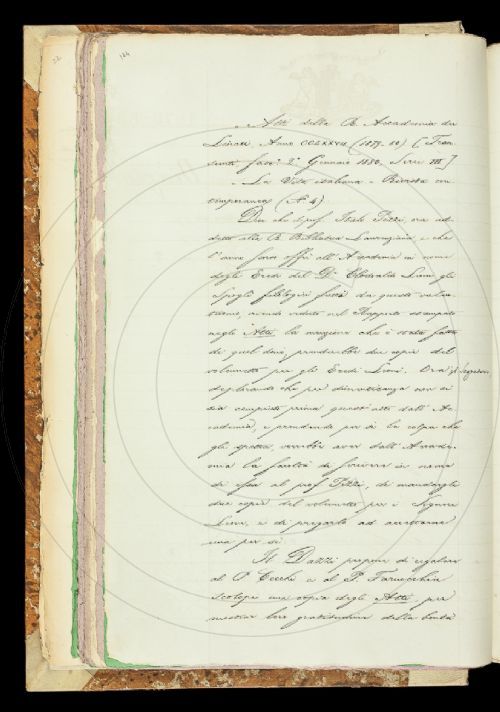 124
„ Atti della R. Accademia dei
Lincei, Anno CCLXXVII (1879-80) [Tran
sunti fasc. 2° Gennaio 1880, Serie III]
„ La Vita italiana - Rivista con
temporanea (N. 4)
Dice che il prof. Italo Pizzi, ora ad
detto alla R. Biblioteca Laurenziana, e che
l'anno scorso offrì all'Accademia in nome
degli Eredi del D. Clodoaldo Lioni gli
spogli filologici fatti da questo
avendo veduto nel Rapporto stampato
negli Atti la menzione che è stata fatta
di quel dono, prenderebbe due copie del
volumetto per gli Eredi Lioni. Ora il Segretario
deplorando che per dimenticanza non si
sia compiuto prima quest'atto dall'Ac-
cademia, e prendendo per sè la colpa che
gli spetta, vorrebbe aver dall'Accade-
mia la facoltà di scrivere in nome
di essa al prof. Pizzi, di mandargli
due copie del volumetto per i Signori
Lioni, e di pregarlo ad accettarne
una per sè.
Il Dazzi propone di regalare
al P. Cecchi e al P. Tanucchia
Scolopi una copia degli Atti, per
mostrar loro gratitudine della bontà